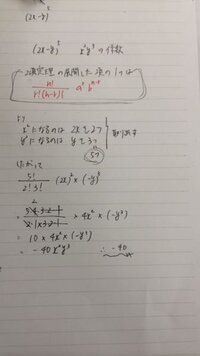 (2x-y)⁵
(2x-y)⁵ x²y³の係数
2項定理の展開した2項の1つは
n!/r!(n-r)! aʳbⁿ⁻ʳ
よって
x²になるのは 2xを2つ
y³になるのは yを3つ 取り出す
5つ
したがって
5!/2!3! (2x)²×(-y)³
= 5·4·3·2·1/2·1×3·2·1 × 4x²×(-y³)
= 10×4x²×(-y³)
= -40x²y³ ∴ -40